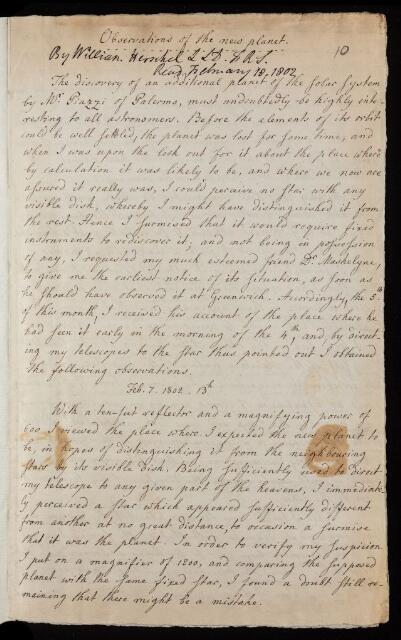 Observations of the new planet.
10
By William Herschel LLD. F.R.S.
Read February 18, 1802
The discovery of an additional planet of the Solar System
by Mr Piazzi of Palermo, must undoubtedly be highly inte-
resting to all astronomers. Before the elements of its orbit
could be well settled, the planet was lost for some time; and
when I was upon the look out for it about the place where
by calculation it was likely to be, and where we now are
assured it really was, I could perceive no star with any
visible disk, whereby I might have distinguished it from
the rest. Hence I surmised that it would require fixed
instruments to rediscover it; and not being in possession
of any, I requested my much esteemed friend Dr. Maskelyne,
to give me the earliest notice of its situation, as soon as
he should have observed it at Greenwich. Accordingly, the 5th
of this month, I received his account of the place where he
had seen it early in the morning of the 4th, and by direct-
ing my telescopes to the star thus pointed out I obtained
the following observations.
Feb. 7. 1802. 13h
With a ten-feet reflector and a magnifying power of
600 I viewed the place where I expected the new planet to
be, in hopes of distinguishing it from the neighbouring
stars by its visible disk. Being sufficiently used to direct
my telescope to any given part of the heavens, I immediate-
ly perceived a star which appeared sufficiently different
from another at no great distance, to occasion a surmise
that it was the planet. In order to verify my suspicion
I put on a magnifier of 1200, and comparing the supposed
planet with the same fixed star, I found a doubt still re-
maining that there might be a mistake.